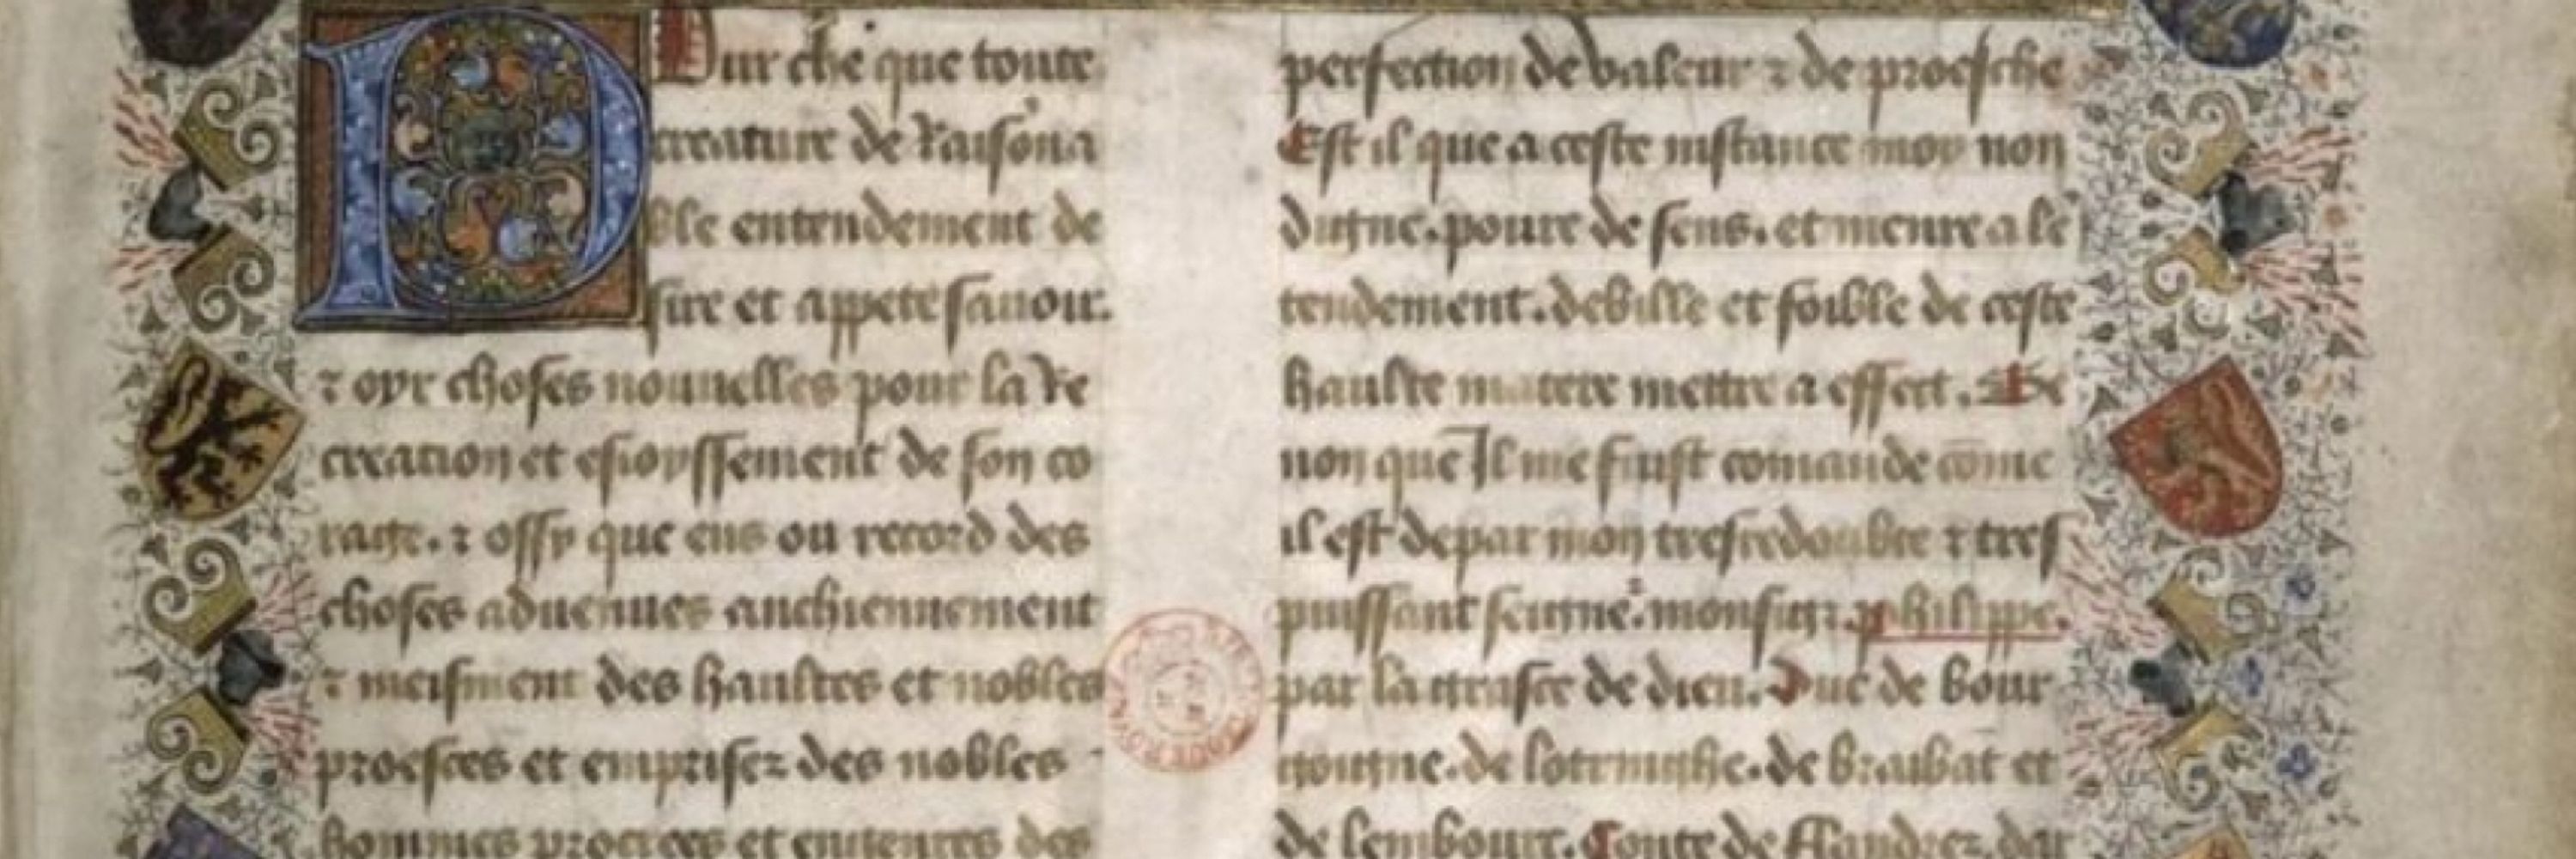 Pur che que toute
creature de Raisona
ble entendement de
sire et appete sauoir.
⁊ oyr choses nouuelles pour la Re
creation et esioyssement de son co
rage. ⁊ ossy que ens ou record des
choses aduenues anchiennement
⁊ meisment des haultes et nobles
proesces et emprisez des nobles
hommes procrees et engenres des
perfection de valeur ⁊ de proesche
Est il que a ceste instance moy non
digne. poure de sens. et menre a le
tendement. debille et foible de ceste
haulte matere mettre a effect.
non que Il me fuist comande cōme
il est de par mon tresredoubte ⁊ tres
puissant seigne. monsigr. philippe.
par la grasce de dieu. Duc de bour
gongne. de lotringhe. de braibāt et
de lembourc. Conte de fflandrez. dar